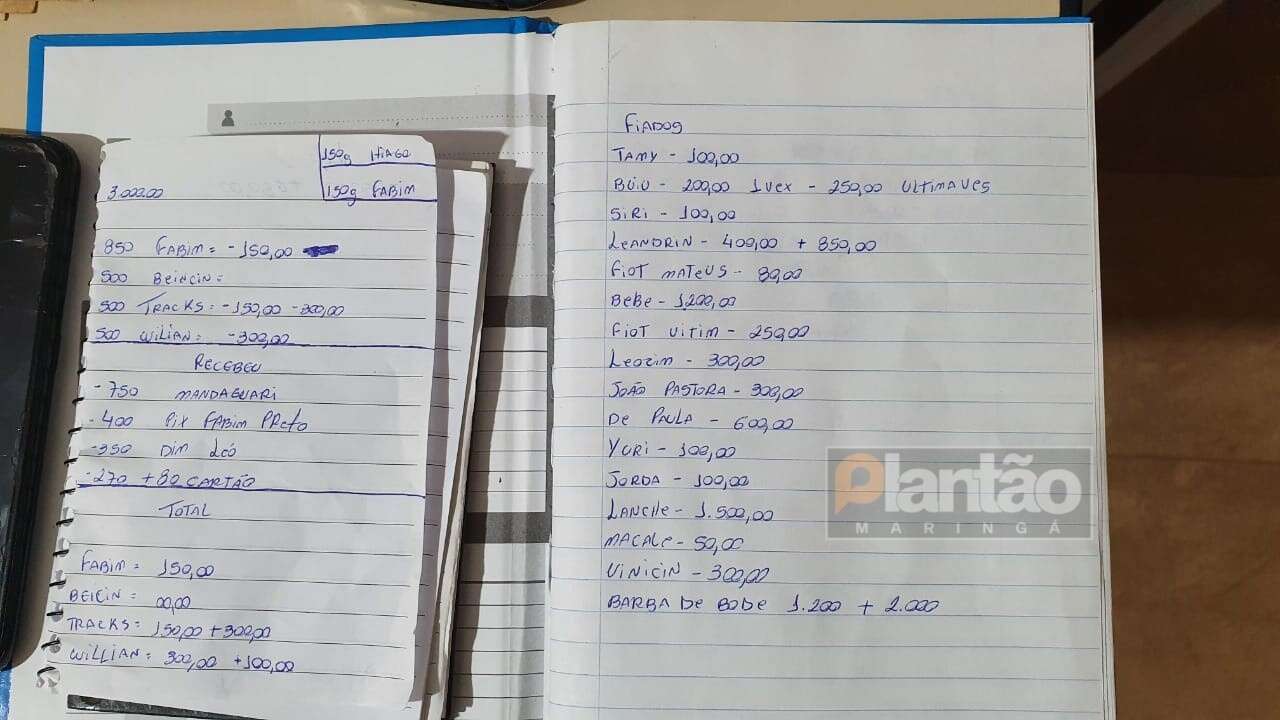 150g HIAGO
3.000.00
150g FABIM
850 FABIM = -150,00
500 BEICIN =
500 TRACKS = -150,00 -300,00
500 WILIAN = -300,00
RECEBEU
-750 MANDAGUARI
-400 PIX FABIM PRETO
-350 DIM LEÓ
-270 +80 CARTÃO
TOTAL
FABIM = 150,00
BEICIN = 00,00
TRACKS = 150,00 + 300,00
WILLIAN = 300,00 +100,00
FIADOS
TAMY - 100,00
BUIU - 200,00 1 VEX - 250,00 ULTIMAVES
SIRI - 100,00
LEANDRIN - 400,00 + 850,00
FIOT MATEUS - 80,00
BEBE - 1.200,00
FIOT VITIM - 250,00
LEOZIM - 300,00
JOÃO PASTORA - 300,00
DE PAULA - 600,00
YURI - 100,00
JORDA - 100,00
LANCHE - 1.500,00
MACALE - 50,00
VINICIN - 300,00
BARBA DE BODE 1.200 + 2.000
Plantão
MARINGÁ